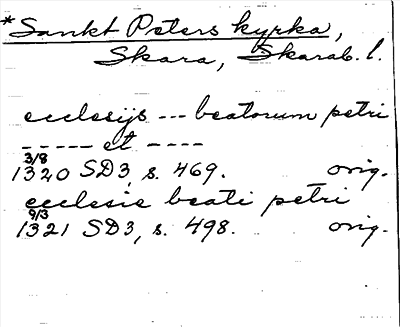 *Sankt Peters kyrka,
Skara, Skarab. l.
ecclesijs --- beatorum petri
----- et ----
3/8
1320 SD3, s. 469. orig.
ecclesie beati petri
9/3
1321 SD3, s. 498. orig.